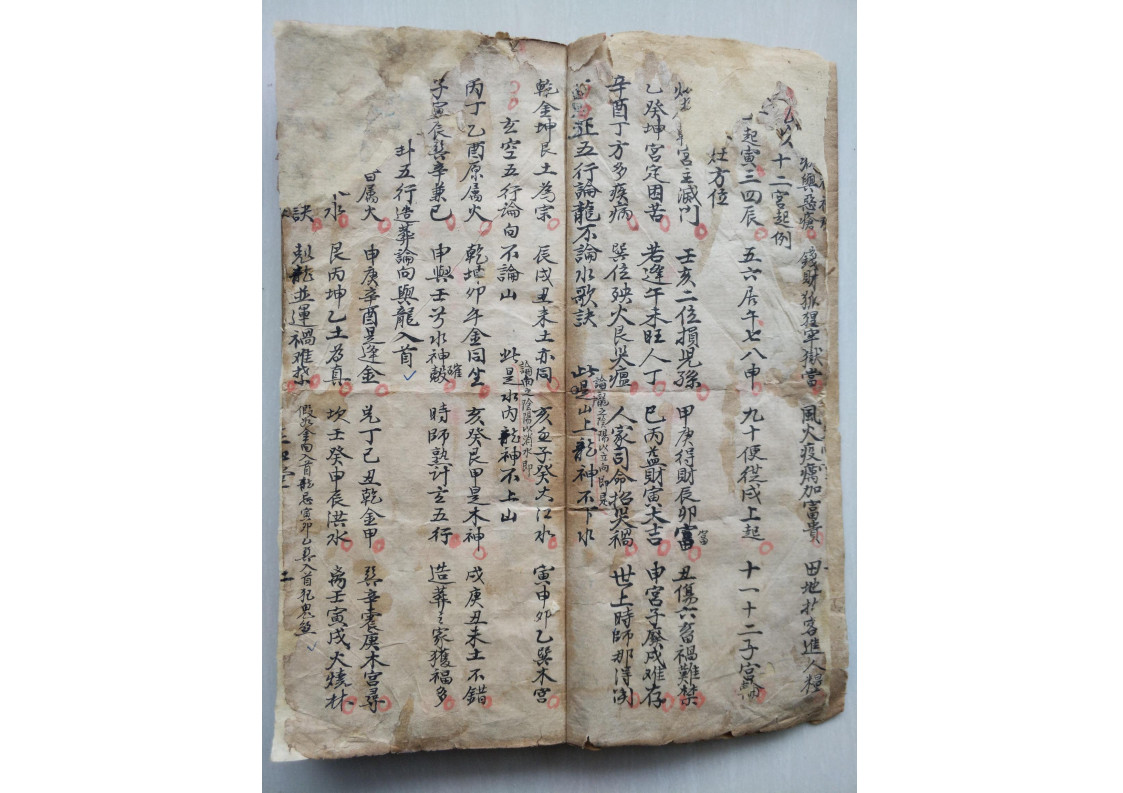 興惡瘡 錢財孤猩牢獄當 風火疫癘加富貴 田地招客進人糧
十二宮起例
起寅三四辰 五六居午七八申 九十便從戌上起 十一十二子宮
灶方位
宮主滅門 壬亥二位損児孫 甲庚得財辰卯富 富 丑傷六畜禍難禁
乙癸坤宮定困苦 若逢午未旺人丁 巳丙益財寅大吉 申宮子癸戌难存
辛酉丁方多疾病 巽位殃火艮哭瘟 人家司命招哭禍 世上時師那得測
正五行論龍不論水歌訣 論龍之陰陽以立向即是 此是山上龍神不下水
乾金坤艮土為宗 辰戌丑未土亦同 亥壬子癸大江水 寅申卯乙巽木宮
玄空五行論向不論山 論向之陰陽以消水即 此是水內龍神不上山
丙丁乙酉原属火 乾坤卯午金同生 亥癸艮甲是木神 戌庚丑未土不錯
子寅辰巽辛兼巳 申與壬兮水神 時師熟計玄五行 造葬之家獲福多
卦五行造葬論向與龍入首
属火 申庚辛酉是逢金 兑丁巳丑乾金甲 巽辛震庚木宮尋
水 艮丙坤乙土为真 坎壬癸申辰洪水 离壬寅戌火燒林
訣 剋龍並運禍难 假如金向入首龍忌寅卯乙巽入首犯鬼煞